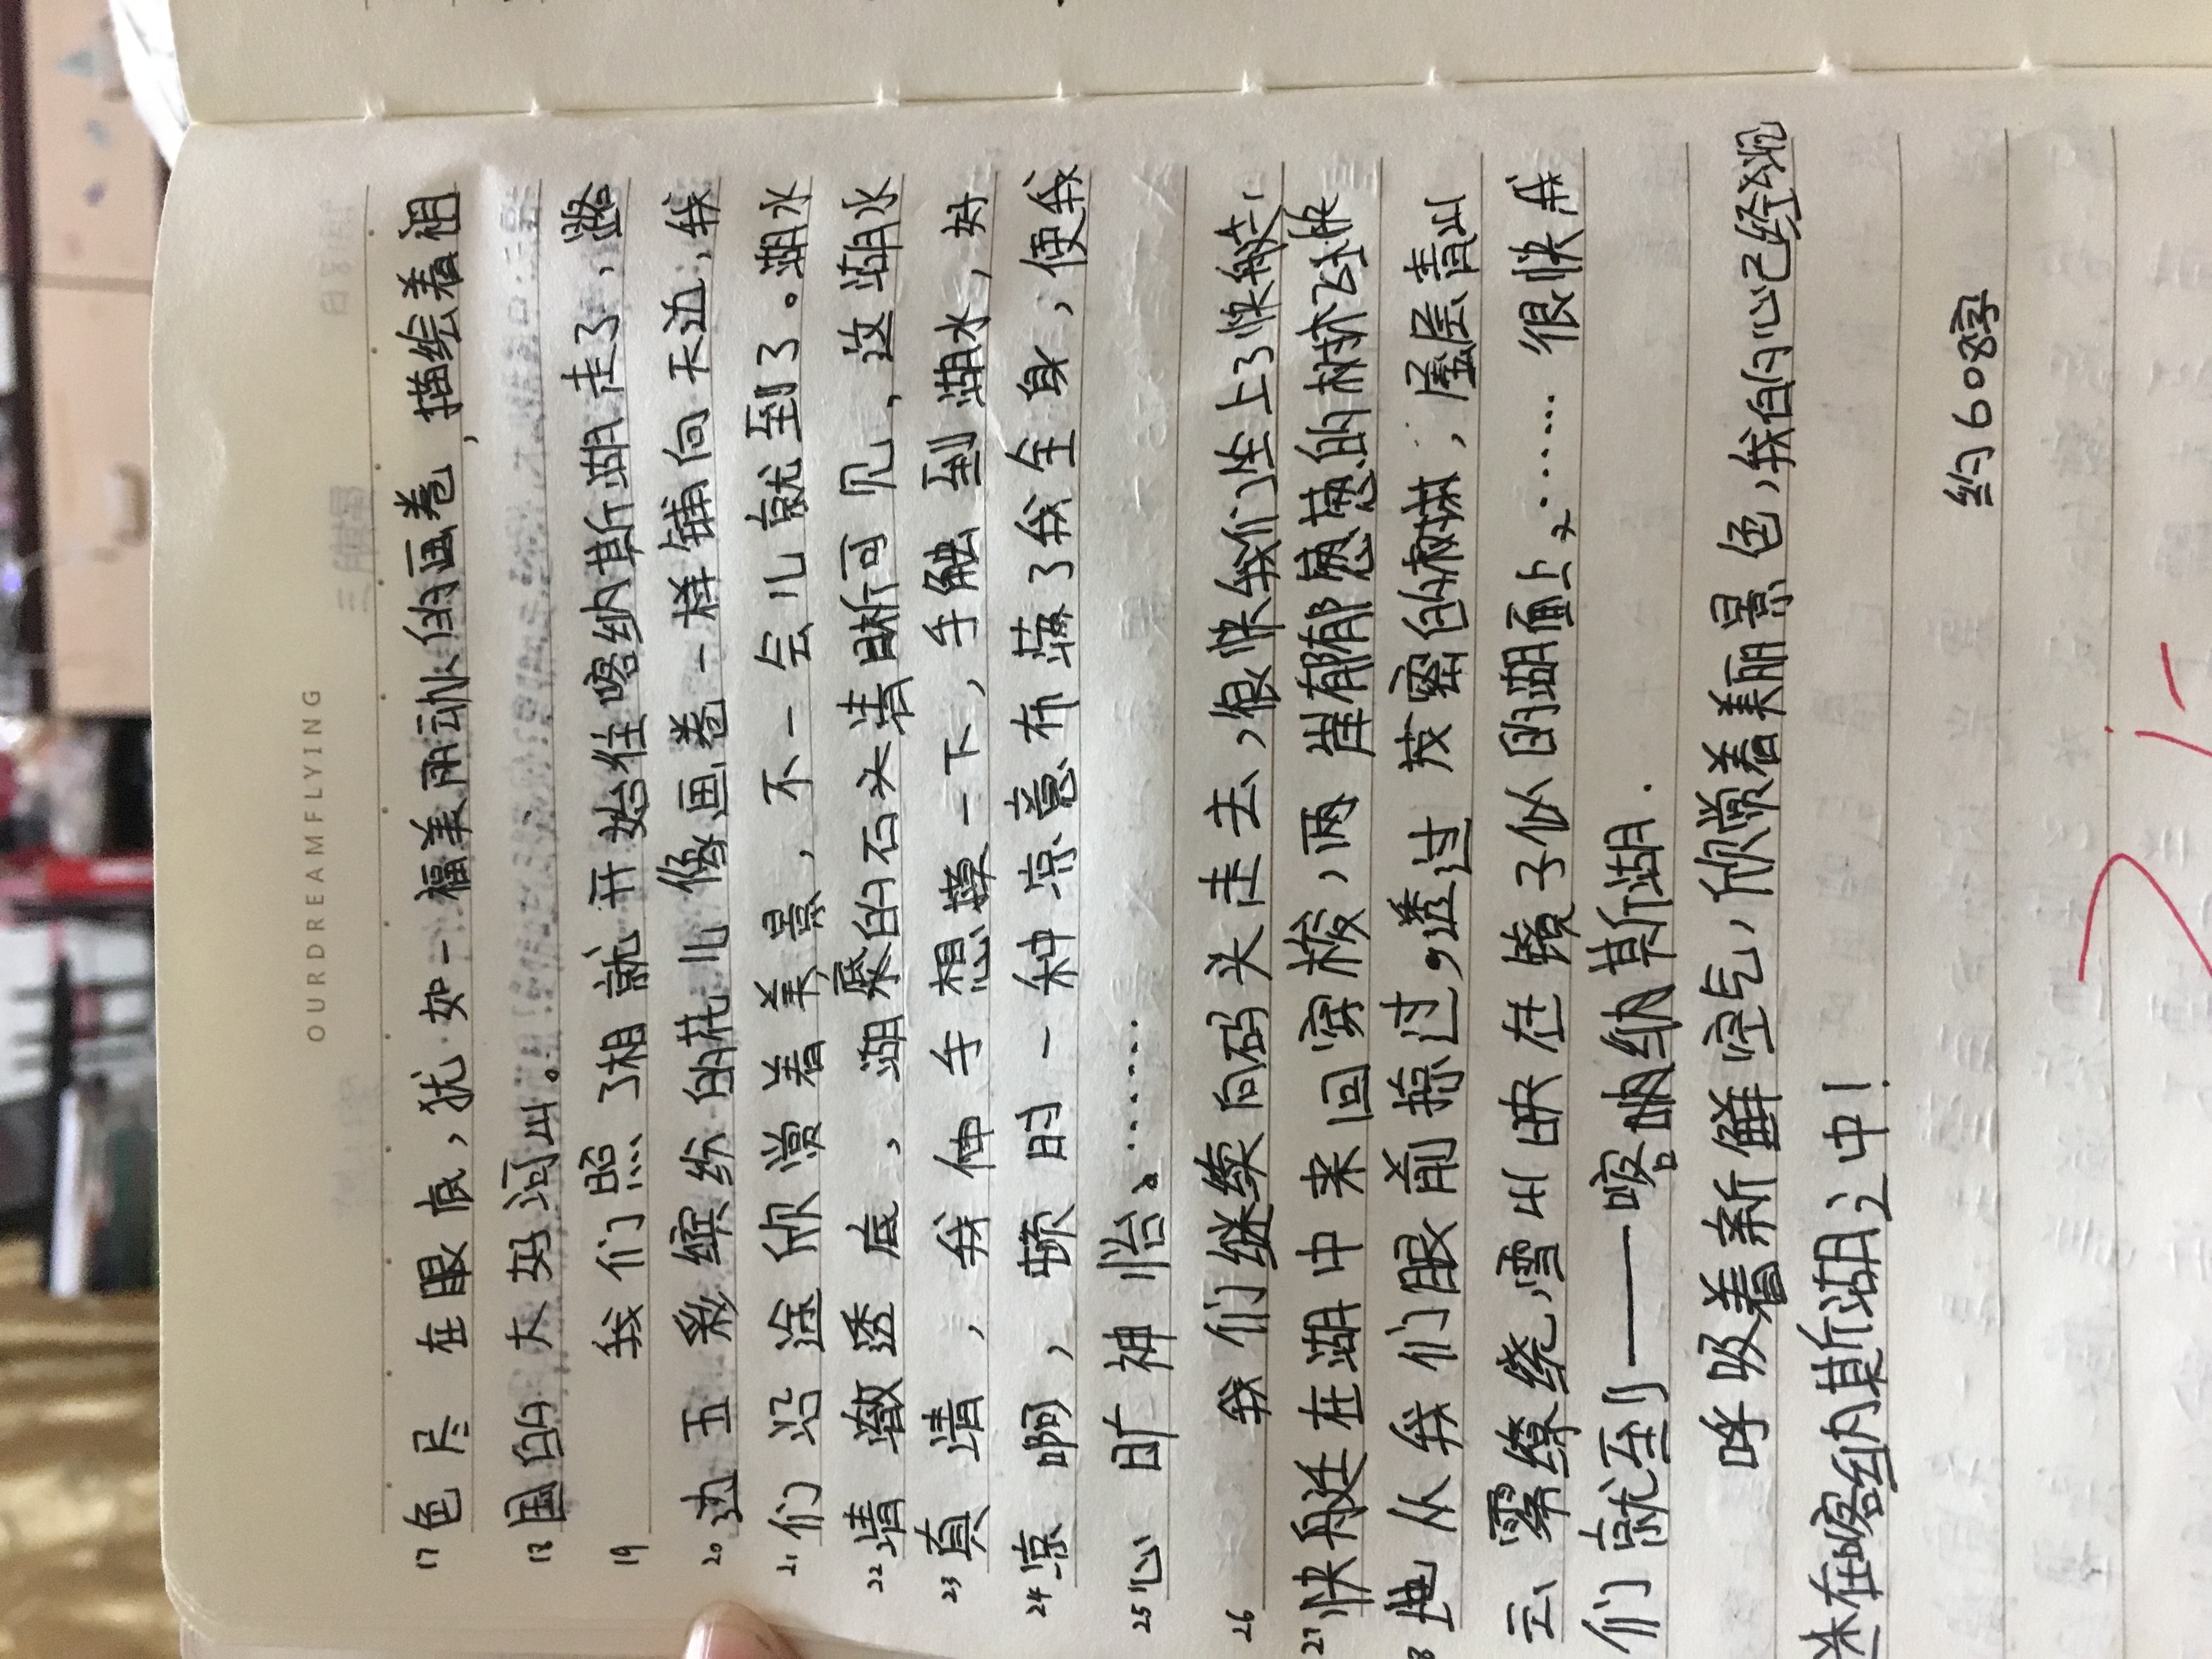 OURDREAMFLYING
17 色尽在眼底,犹如一福美丽动人的画卷,描绘着祖
18 国的大好河山。
19 我们照了相就开始往喀纳斯湖走了,路
20 边五彩缤纷的花儿像画卷一样铺向天边,我
21 们沿途欣赏着美景,不一会儿就到了。湖水
22 清澈透底,湖 的石头清晰可见,这湖水
23 真清,我伸手想摸一下,手触到湖水,好
24 凉啊,顿时一种凉意布满了我全身,使我
25 心旷神怡。……
26 我们继续向码头走去,很快我们坐上了快艇,
27 快艇在湖中来回穿梭,两崖郁郁葱葱的树木飞快
8 地从我们眼前掠过,透过茂密的树林,层层青山
云雾缭绕,雪山映在镜子似的湖面上……很快我
们就到——喀纳斯湖.
呼吸着新鲜空气,欣赏着美丽景色,我的心已经
迷在喀纳斯湖之中!
约608字